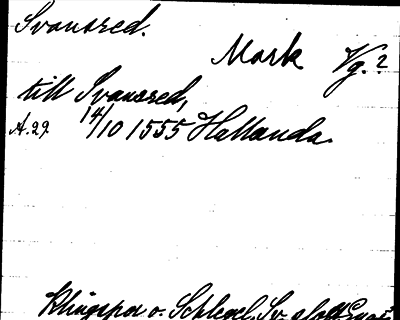 Svansred.
Mark Vg. ?
till Svansred,
A. 29. 14/10 1555 Hallanda.
Klingspor o. Schlegel, Sv. slott